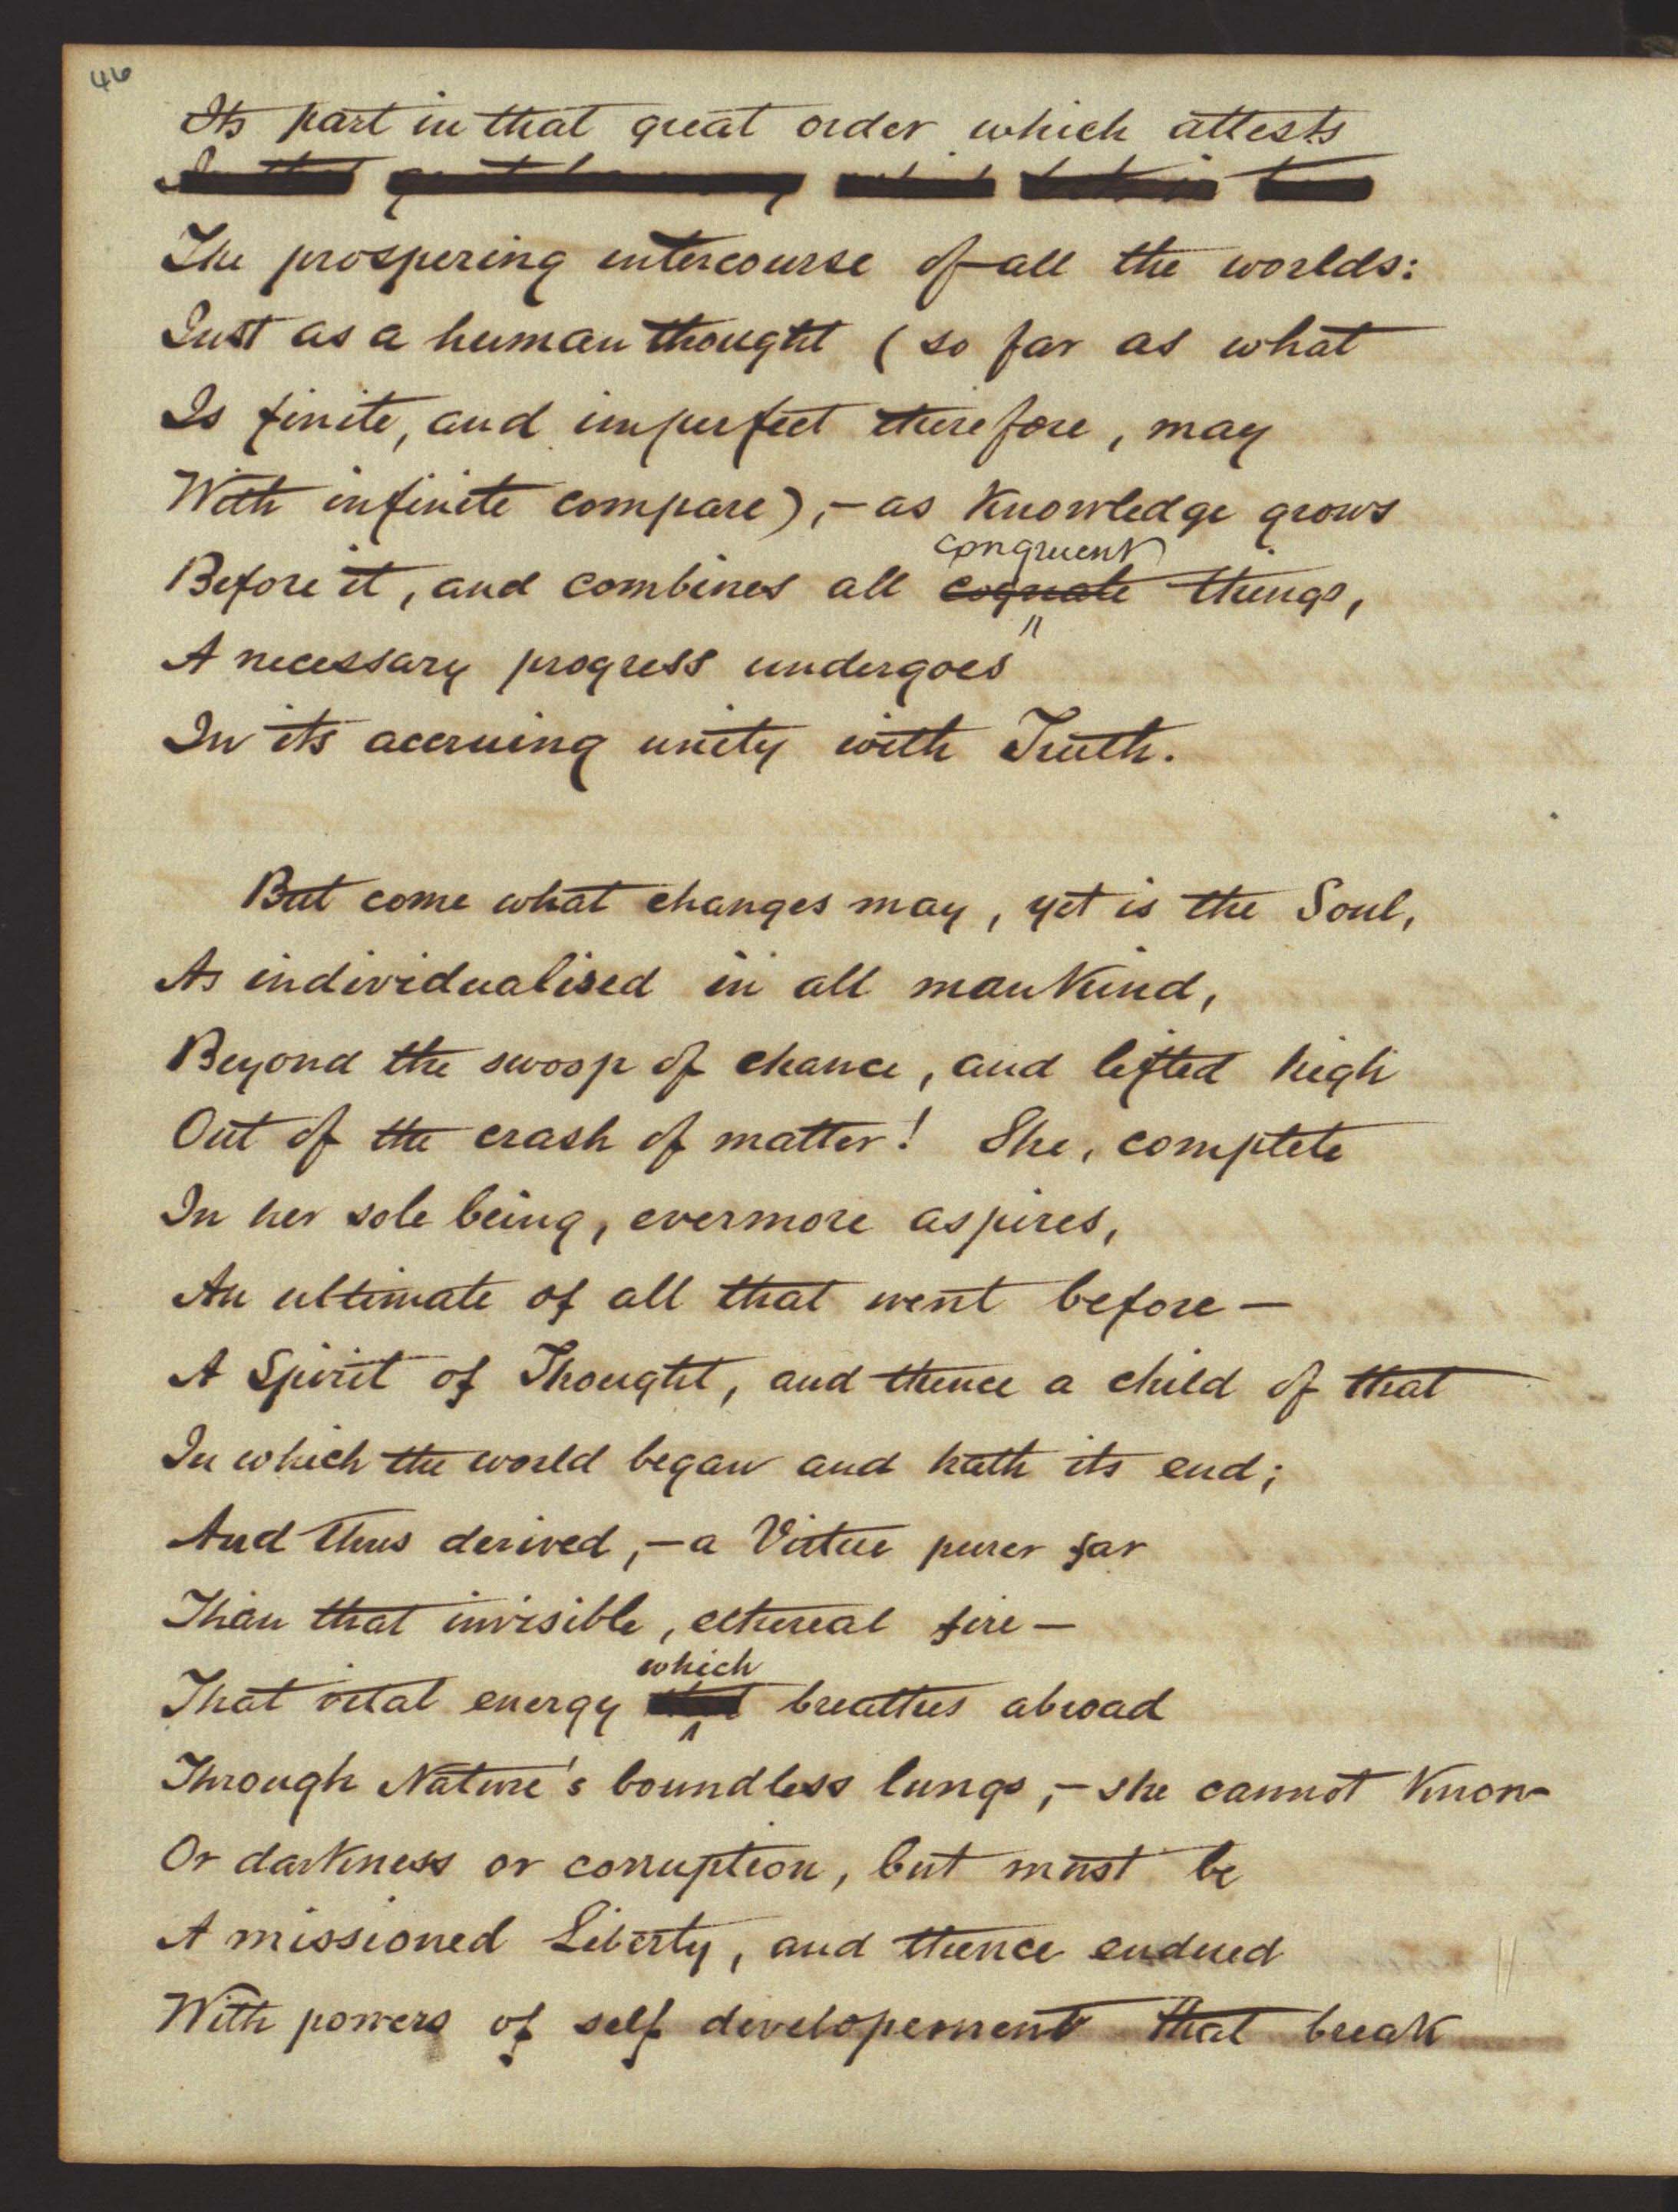 46
Its part in that great order which attests
The prospering intercourse of all the worlds:
Just as a human thought (so far as what
Is finite, and imperfect therefore, may
With infinite compare),—as Knowledge grows
congruent
Before it, and combines all cognate things,
A necessary progress undergoes
In its accruing unity with Truth.
But come what changes may, yet is the Soul,
As individualised in all mankind,
Beyond the swoop of chance, and lifted high
Out of the crash of matter! She, complete
In her sole being, evermore aspires,
An ultimate of all that went before—
A Spirit of Thought, and thence a child of that
In which the world began and hath its end;
And thus derived,—a Virtue purer far
Than that invisible, ethereal fire—
which
That vital energy breathes abroad
Through Nature's boundless lungs,—she cannot know
Or darkness or corruption, but must be
A missioned Liberty, and thence endued
With powers of self developement that break